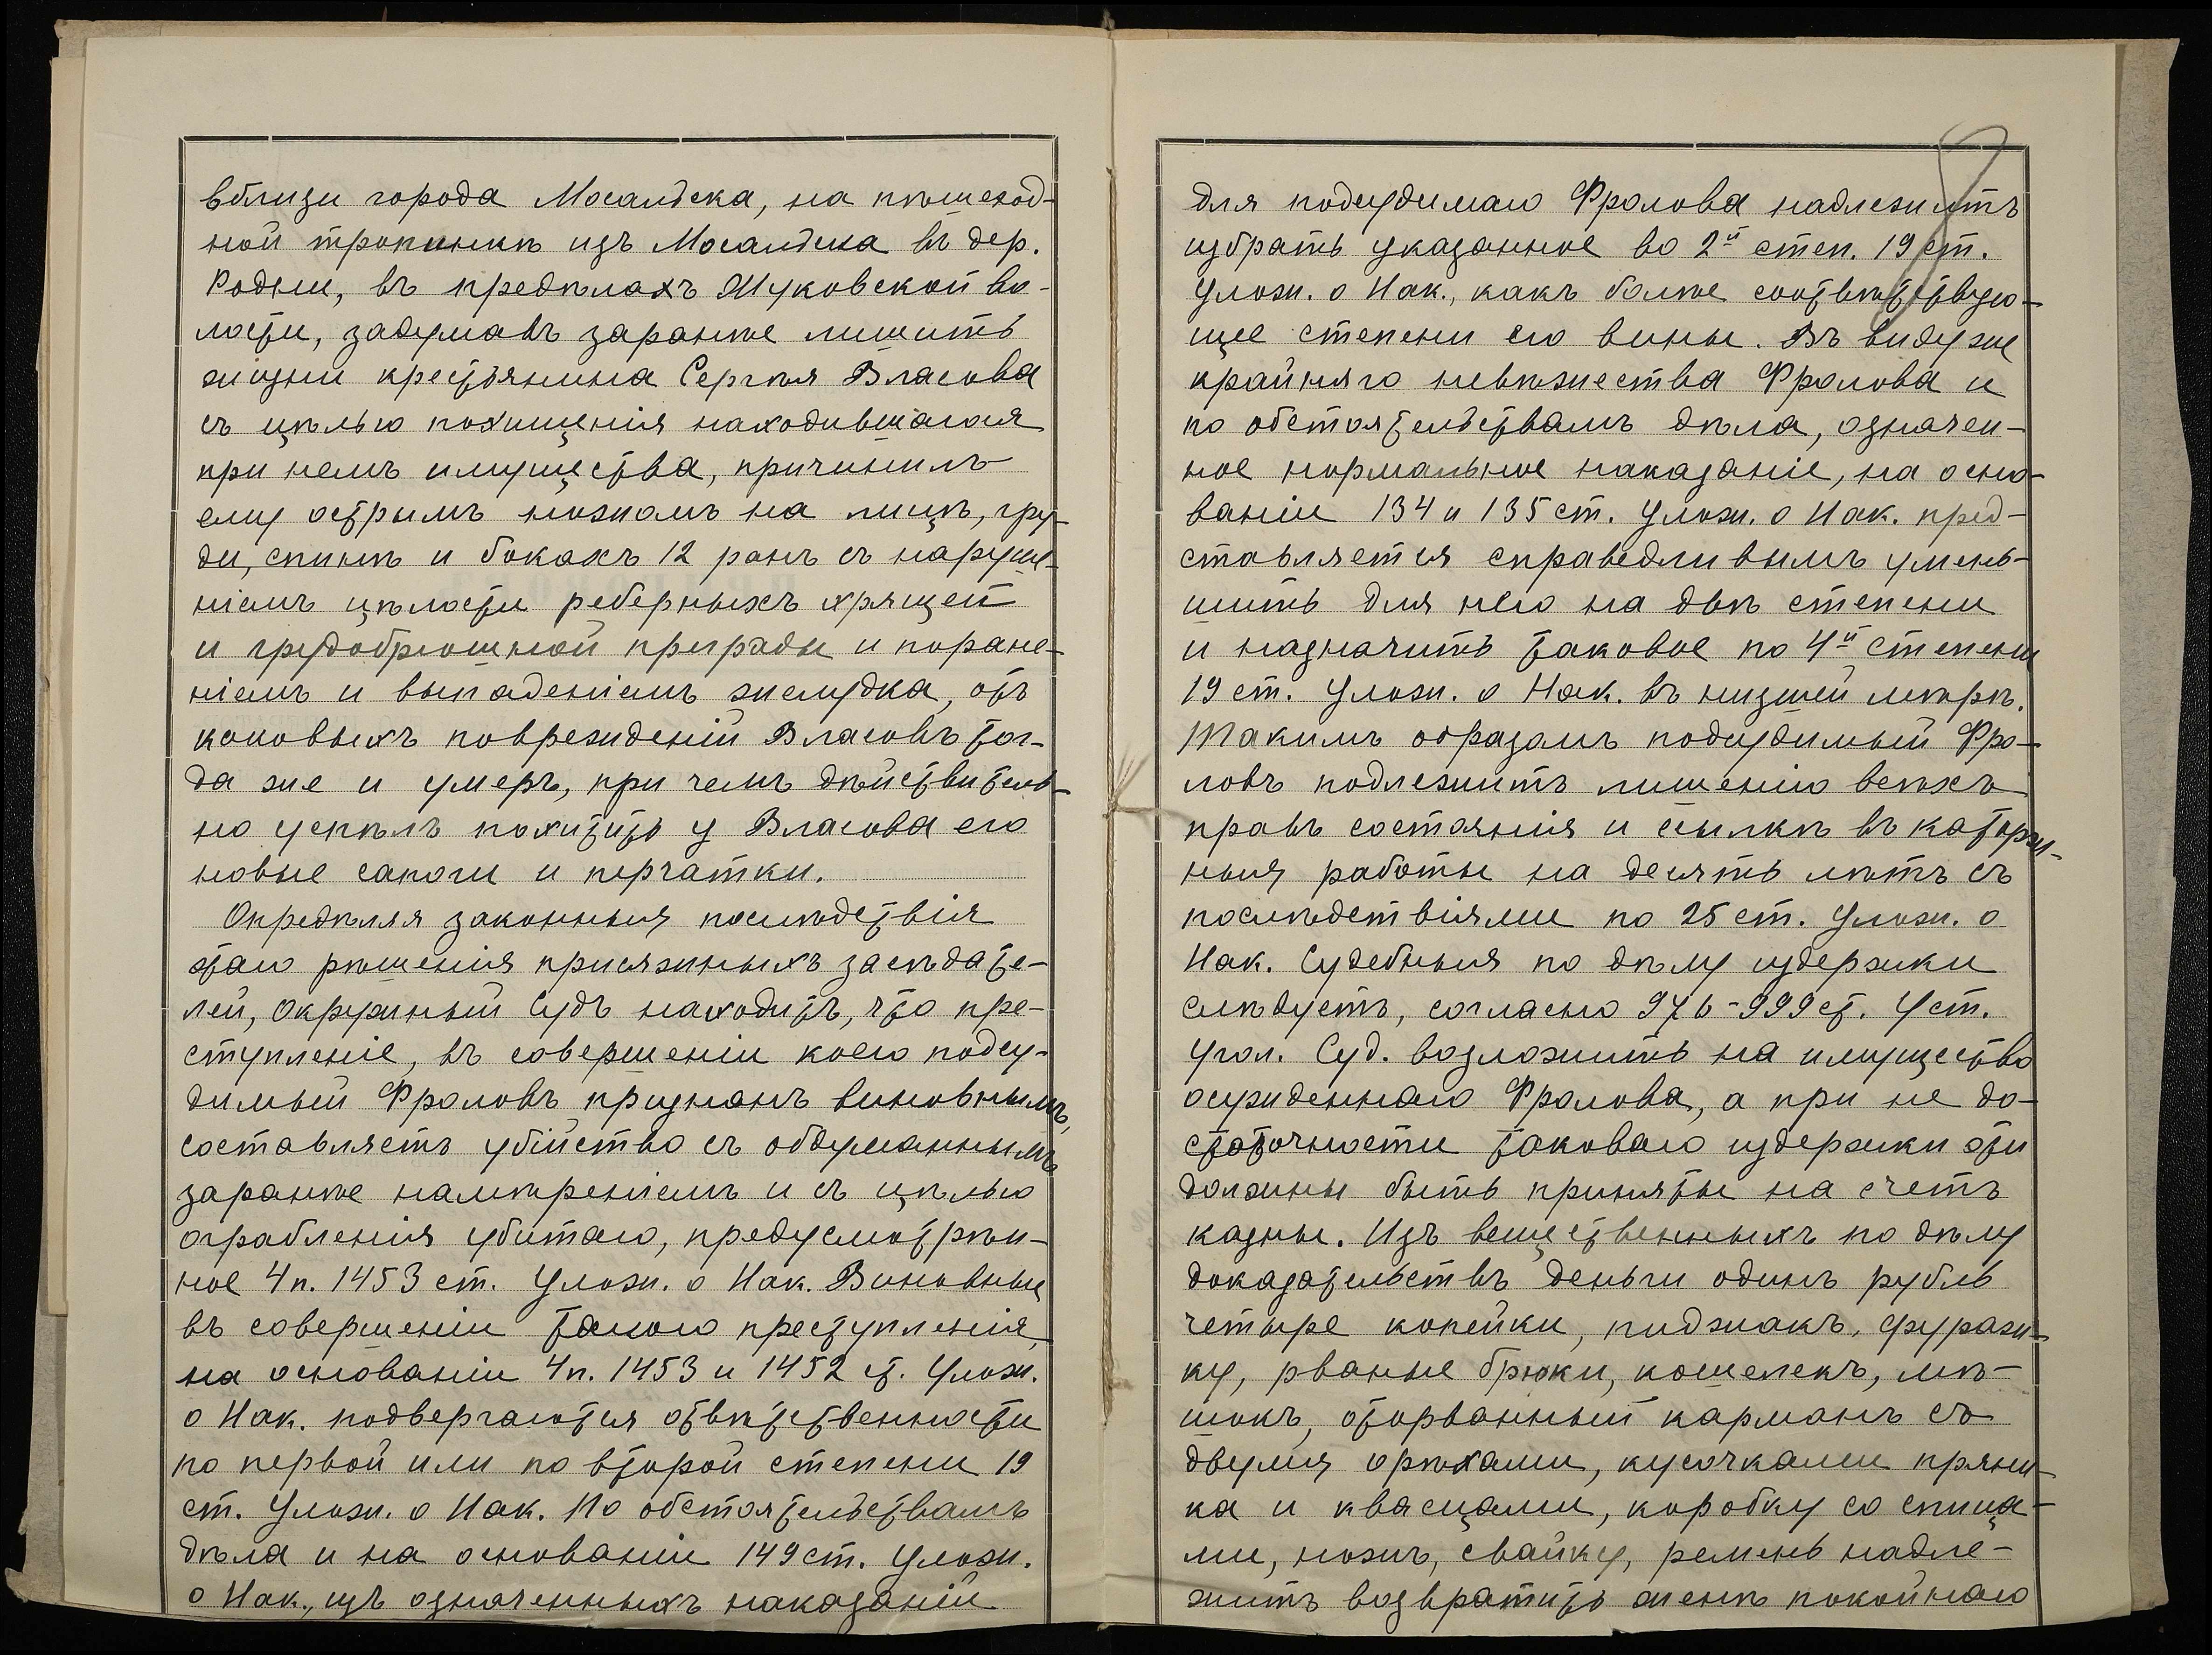 вблизи города Мосальска, на пѣшеход-
ной тропинкѣ изъ Мосальска въ дер.
Родни, въ предѣлахъ Жуковской во-
лости, задумавъ заранѣе лишить
жизни крестьянина Сергѣя Власова
съ цѣлью похищенія находившагося
при немъ имущества, причинилъ
ему острымъ ножомъ на лицѣ, гру-
ди, спинѣ и бокахъ 12 ранъ съ наруше-
ніемъ цѣлости реберныхъ хрящей
и грудобрюшной преграды и поране-
ніемъ и выпаденіемъ желудка, отъ
каковыхъ поврежденій Власовъ тог-
да же и умеръ, при чемъ дѣйствитель-
но успѣлъ похитить у Власова его
новые сапоги и перчатки.
Опредѣляя законныя послѣдствія
этаго рѣшенія присяжныхъ засѣдате-
лей, Окружный Судъ находитъ, что пре-
ступленіе, въ совершеніи коего подсу-
димый Фроловъ признанъ виновнымъ,
составляетъ убійство съ обдуманнымъ
заранѣе намѣреніемъ и съ цѣлью
ограбленія убитаго, предусмотрѣн-
ное 4 п. 1453 ст. Улож. о Нак. Виновные
въ совершеніи такого преступленія,
на основаніи 4 п. 1453 и 1452 ст. Улож.
о Нак. подвергаются отвѣтственности
по первой или по второй степени 19
ст. Улож. о Нак. По обстоятельствамъ
дѣла и на основаніи 149 ст. Улож.
о Нак., изъ означенныхъ наказаній
для подсудимаго Фролова надлежитъ
избрать указанное во 2й степ. 19 ст.
Улож. о Нак., какъ болѣе соотвѣтствую-
щее степени его вины. Въ виду же
крайняго невѣжества Фролова и
по обстоятельствамъ дѣла, означен-
ное нормальное наказаніе, на осно-
ваніи 134 и 135 ст. Улож. о Нак. пред-
ставляется справедливымъ умень-
шить для него на двѣ степени
и назначить таковое по 4й степени
19 ст. Улож. о Нак. въ низшей мѣрѣ.
Такимъ образомъ подсудимый Фро-
ловъ подлежитъ лишенію всѣхъ
правъ состоянія и ссылкѣ въ каторж-
ныя работы на десять лѣтъ съ
послѣдствіями по 25 ст. Улож. о
Нак. Судебныя по дѣлу издержки
слѣдуетъ, согласно 976-999 ст. Уст.
Угол. Суд. возложить на имущество
осужденнаго Фролова, а при не до-
статочности таковаго издержки эти
должны быть приняты на счетъ
казны. Изъ вещественныхъ по дѣлу
доказательствъ деньги одинъ рубль
четыре копейки, пиджакъ, фураж-
ку, рваные брюки, кошелекъ, мѣ-
шокъ, оторванный карманъ съ
двумя орѣхами, кусочками пряни-
ка и квасцами, коробку со спица-
ми, ножъ, свайку, ремень надле-
житъ возвратить женѣ покойнаго